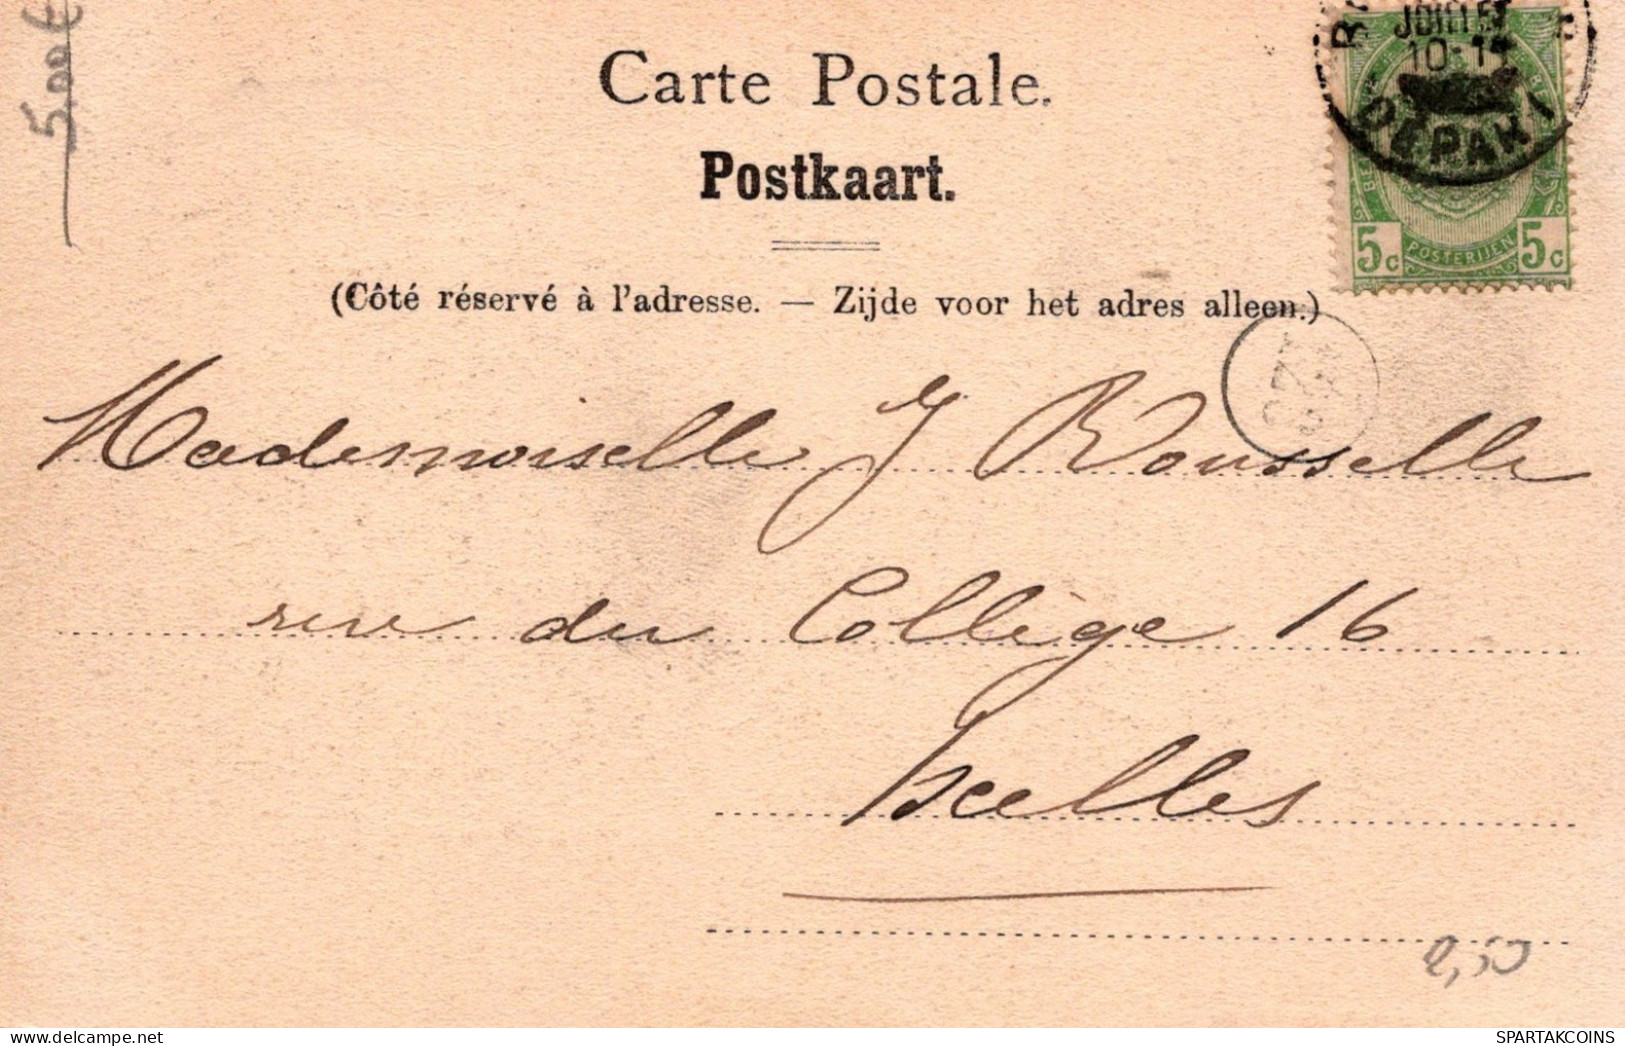 5,00€
Carte Postale.
Postkaart.
(Côté réservé à l'adresse. — Zijde voor het adres alleen.)
JUILLET
10-11
DÉPART
5c POSTERIJEN 5c
Mademoiselle J Rousselle
rue du Collège 16
Ixelles
2,50
www.delcampe.net
SPARTAKCOINS